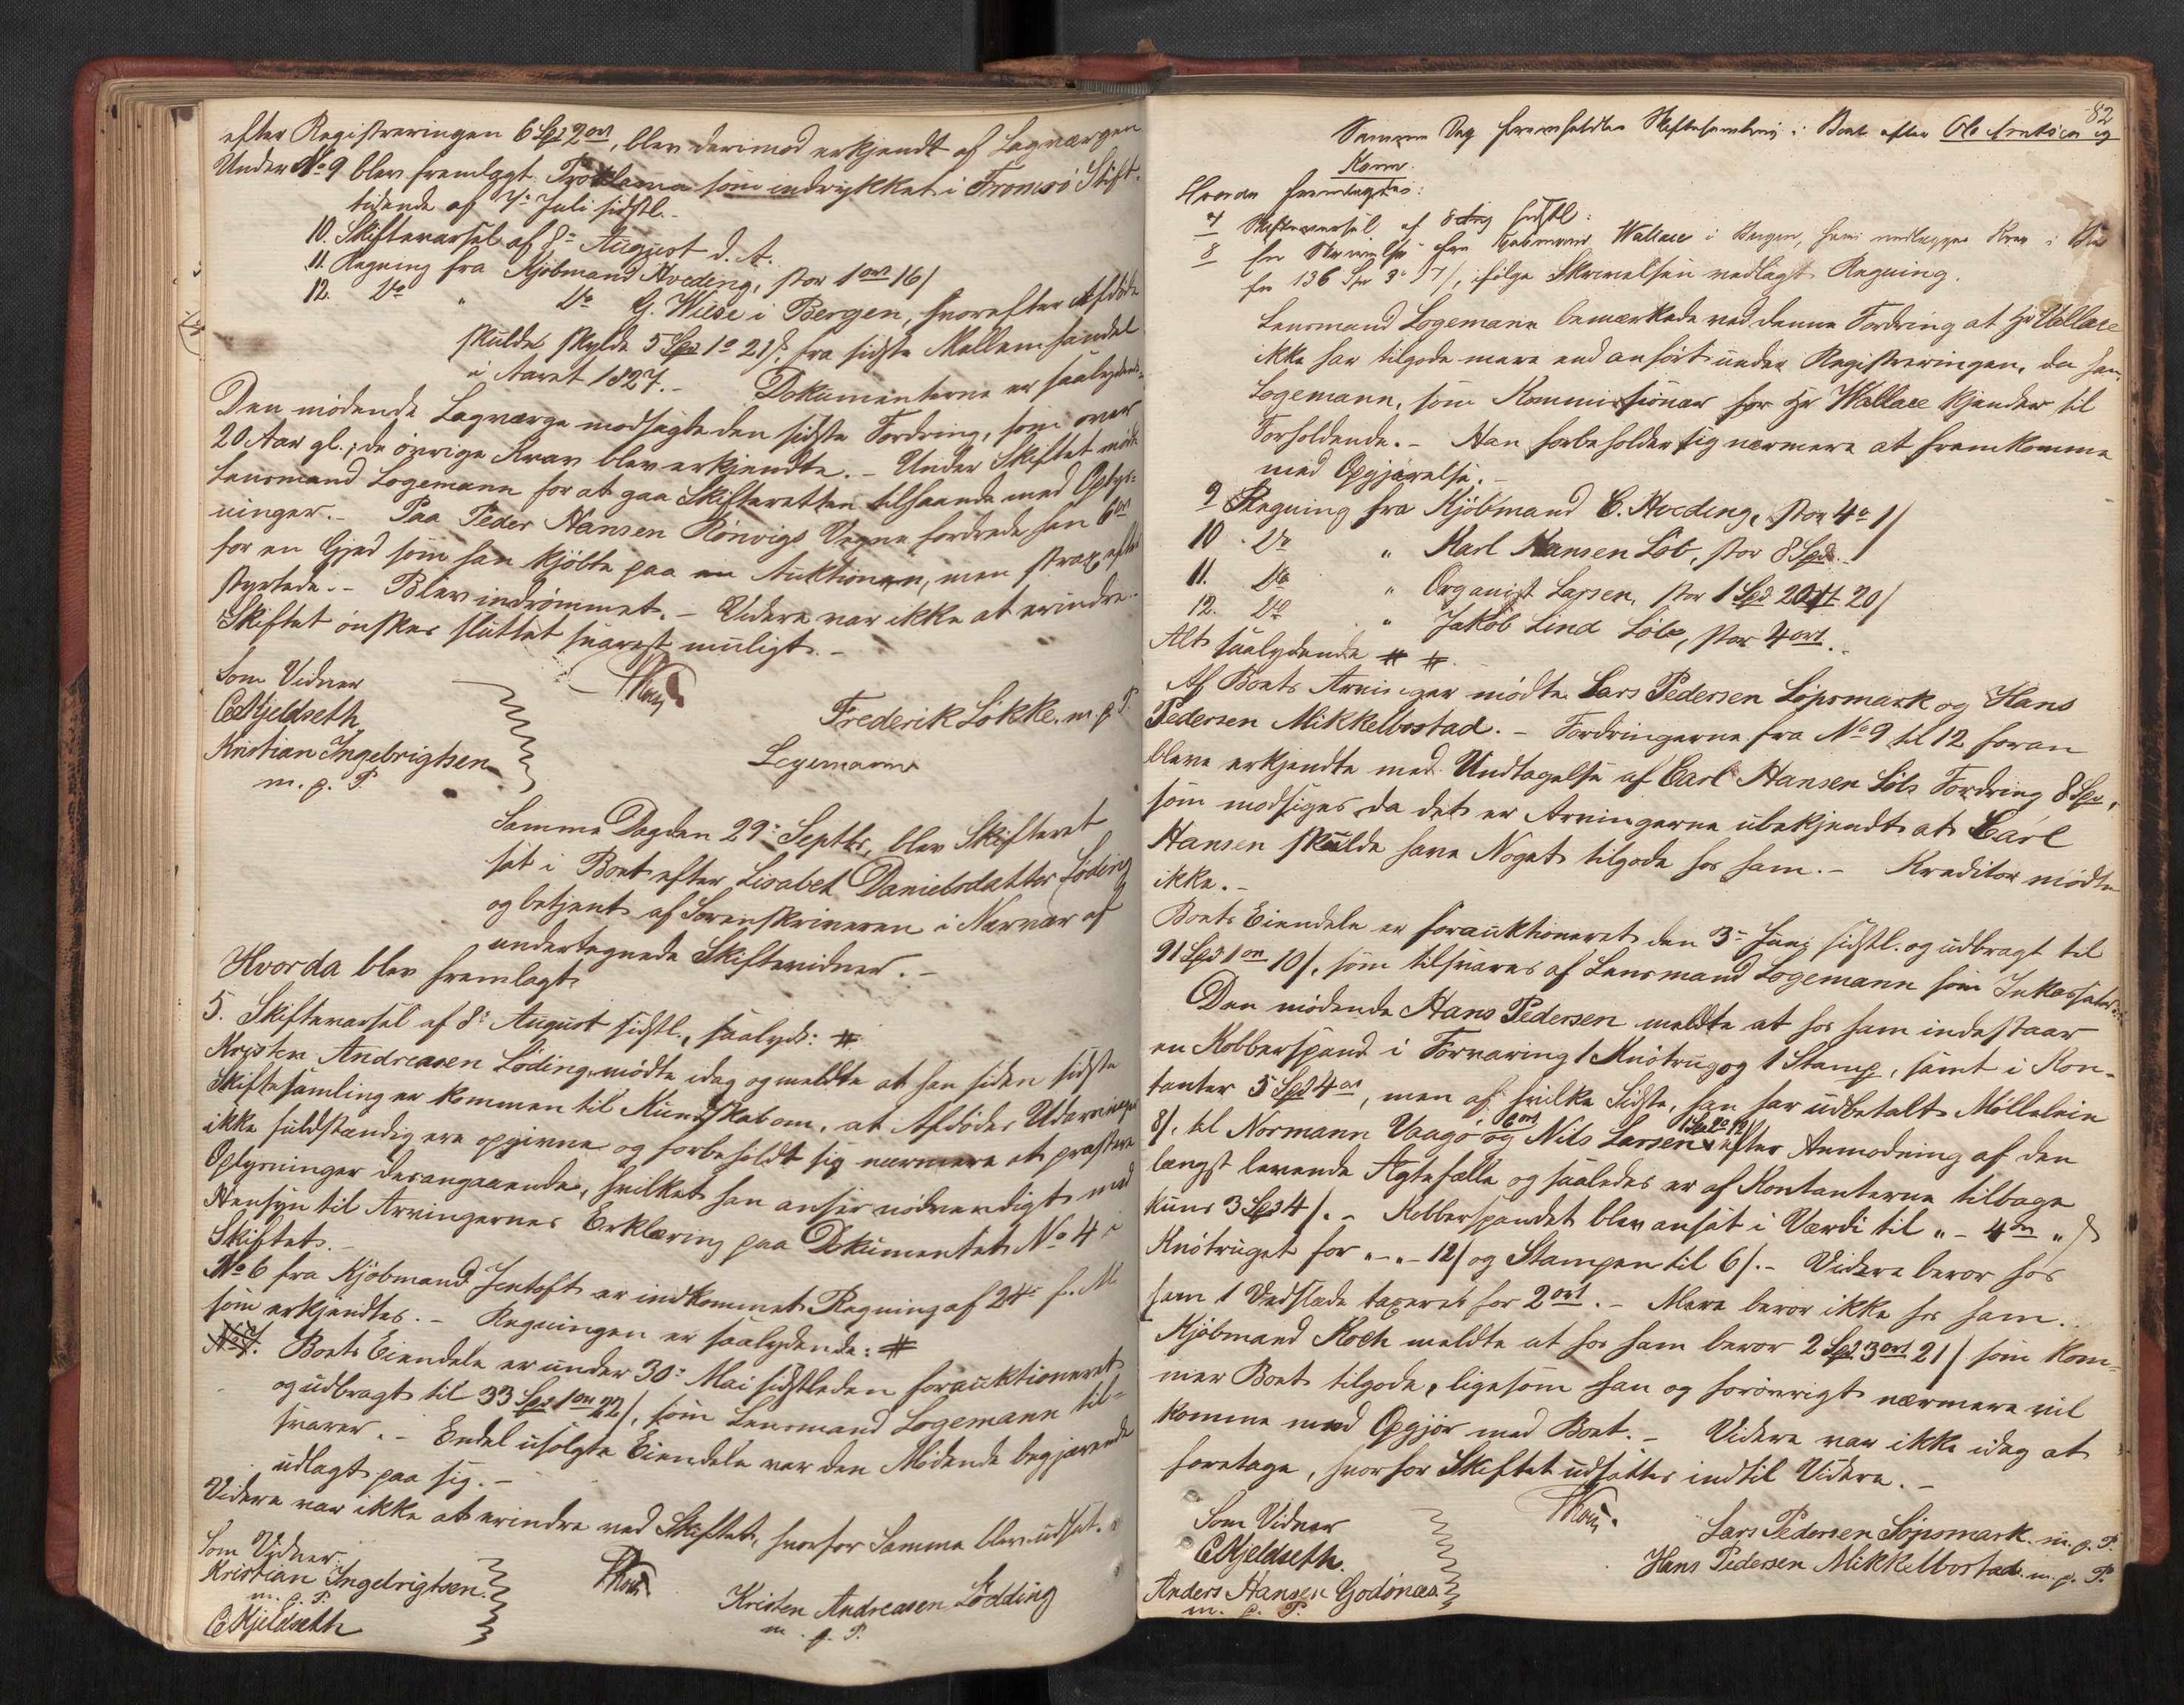 efter Registreringen 6 Spd 2 ort, blev derimod erkjendt af Lagværgen
Under No 9 blev fremlagt Proklama som indrykket i Tromsö Stift-
tidende af 7de Juli sidstl.
10. Skiftevarsel af 8de August d. A.
11. Regning fra Kjöbmand Hveding, stor 1 ort 16/
12. Do " Do G. Wiese i Bergen, hvorefter Afdöde
skulde skylde 5 Spd 1 o 21 s, fra sidste Mellemhandel
i Aaret 1827. - Dokumenterne er saalydende
Den mödende Lagværge modsagde den sidste Fordring, som over
20 Aar gl.; de övrige Krav blev erkjendte. - Under Skiftet mödte
Lensmand Logemann for at gaa Skifteretten tilhaande med Oplys-
ninger. - Paa Peder Hansen Rönvigs Vegne fordrede han 6 ort
for en Gjed som han kjöbte paa en Auktionen, men strax efter
styrtede. - Blev indrömmet. - Videre var ikke at erindre.
Skiftet önskes sluttet snarest muligt. -
Som Vidner
C Kjeldseth
Kristian Ingebrigtsen
m. p. P.
Frederik Lökke. m. p. P.
Logemann
Samme Dag den 29de Septbr, blev Skifteret
sat i Boet efter Lisabet Danielsdatter Löding
og betjent af Sorenskriveren i Nærvær af
undertegnede Skiftevidner. -
Hvorda blev fremlagt
5. Skiftevarsel af 8de August sidstl., saalyd: #
Kristen Andreasen Löding mödte idag og meldte at han siden sidste
Skiftesamling er kommen til Kundskab om, at Afdödes Udarvinger
ikke fuldstændig ere opgivne og forbeholdt sig nærmere at præstere
Oplysninger desangaaende, hvilket han anser nödvendigt med
Hensyn til Arvingernes Erklæring paa Dokumentet No 4 i
Skiftet. -
No 6 fra Kjöbmand Jentoft er indkommet Regning af 24de f. M.
som erkjendtes. - Regningen er saalydende: #
No 7. Boets Eiendele er under 30de Mai sidstleden forauktioneret
og udbragt til 33 Spd 1 ort 22/, som Lensmand Logemann til-
svarer. - Endel usolgte Eiendele var den Mödende begjærende
udlagt paa sig. -
Videre var ikke at erindre ved Skiftet, hvorfor Samme blev udsat.
Som Vidner
Kristian Ingebrigtsen
m. p. P.
C Kjeldseth
Kristen Andreasen Lödding
m. p. P.
82
Samme Dag fremholdtes Skiftesamling i Boet efter Ole og
Kone.
Hvorda fremlagdes:
7 Skiftevarsel af 8 Aug sidstl:
8 en Skrivelse fra Kjöbmand Wallace i Bergen, som nedlægger Krav i Boet
for 136 Spd 3 o 17/, ifölge Skrivelsen vedlagt Regning.
Lensmand Logemann bemærkede ved denne Fordring at Hr Wallace
ikke har tilgode mere end anfört under Registreringen, da han,
Logemann, som Kommissionær for Hr Wallace kjender til
Forholdende. - Han forbeholder sig nærmere at fremkomme
med Opgjörelse. -
9 Regning fra Kjöbmand C. Hveding, stor 4 o 1/
10 . Do " Karl Hansen Löb, stor 8 Spd.
11. Do " Organist Larsen, stor 1 Spd 2 ort 20/
12. Do " Jakob Lind Löb, stor 4 ort.
Alt saalydende # #
Af Boets Arvinger mödte Lars Pedersen Löpsmark og Hans
Pedersen Mikkelbostad. - Fordringerne fra No 9 til 12 foran
bleve erkjendte med Undtagelse af Carl Hansen Löbs Fordring 8 Spd,
som modsiges da det er Arvingerne ubekjendt at Carl
Hansen skulde have Noget tilgode hos ham. - Kreditor mödte
ikke. -
Boets Eiendele er forauktioneret den 3de Juni sidstl. og udbragt til
91 Spd 1 ort 10/, som tilsvares af Lensmand Logemann som Inkassator.
Den mödende Hans Pedersen meldte at hos ham indestaar
en Kobberspand i Forvaring 1 Knötrug og 1 Stamp, samt i Kon-
tanter 5 Spd 4 ort, men af hvilke Sidste, han har udbetalt Mölleleie
8/, til Normann Vaagö 6 ort og Nils Larsen efter Anmodning af den
længst levende Ægtefælle og saaledes er af Kontanterne tilbage
kuns 3 Spd 4/. - Kobberspandet blev ansat i Værdi til " - 4 ort " s
Knötruget for " - " - 12/ og Stampen til 6/. - Videre beror hos
ham 1 Vedslæde taxeret for 2 ort. - Mere beror ikke hos ham.
Kjöbmand Koch meldte at hos ham beror 2 Spd 3 ort 21/ som kom-
mer Boet tilgode, ligesom han og forövrigt nærmere vil
komme med Opgjör med Boet. - Videre var ikke idag at
foretage, hvorfor Skiftet udsattes indtil Videre. -
Som Vidner
C Kjeldseth.
Anders Hansen Godönæs
m. p. P.
Lars Pedersen Löpsmark m. p. P.
Hans Pedersen Mikkelbostad. m. p. P.